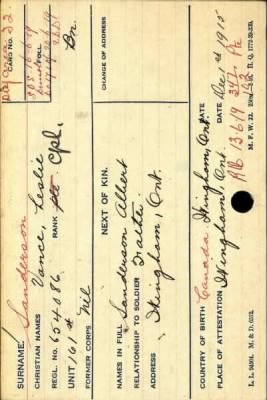 CARD NO.
SURNAME Sanderson
CHRISTIAN NAMES Vance, Leslie
REGL. NO. 654086 RANK Pte Cpl.
UNIT 161st Bn.
FORMER CORPS Nil
CHANGE OF ADDRESS
NEXT OF KIN.
NAMES IN FULL Sanderson Albert
RELATIONSHIP TO SOLDIER Father
ADDRESS Wingham, Ont.
COUNTRY OF BIRTH Canada Wingham, Ont. DATE
PLACE OF ATTESTATION Wingham, Ont. DATE Dec 1st 1915
R/B 13-6-19 347
L. L. M. & D.
M. F. W. 22.
H. Q. 1772-39-339.